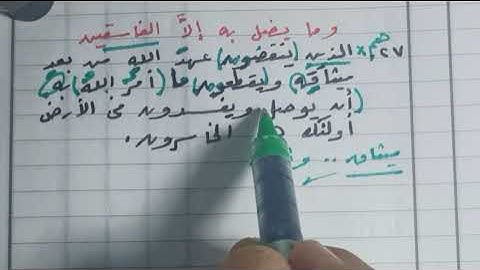 وما يضل به إلاَّ الفاسقين
٢٧* هم الذين (ينقضون) عهد الله من بعد
ميثاقه) و(يقطعون) ما (أمر الله) به)
(أن يوصل ويفسدون فى الأرض
أولئك الخاسرون.
ميثاقه ..